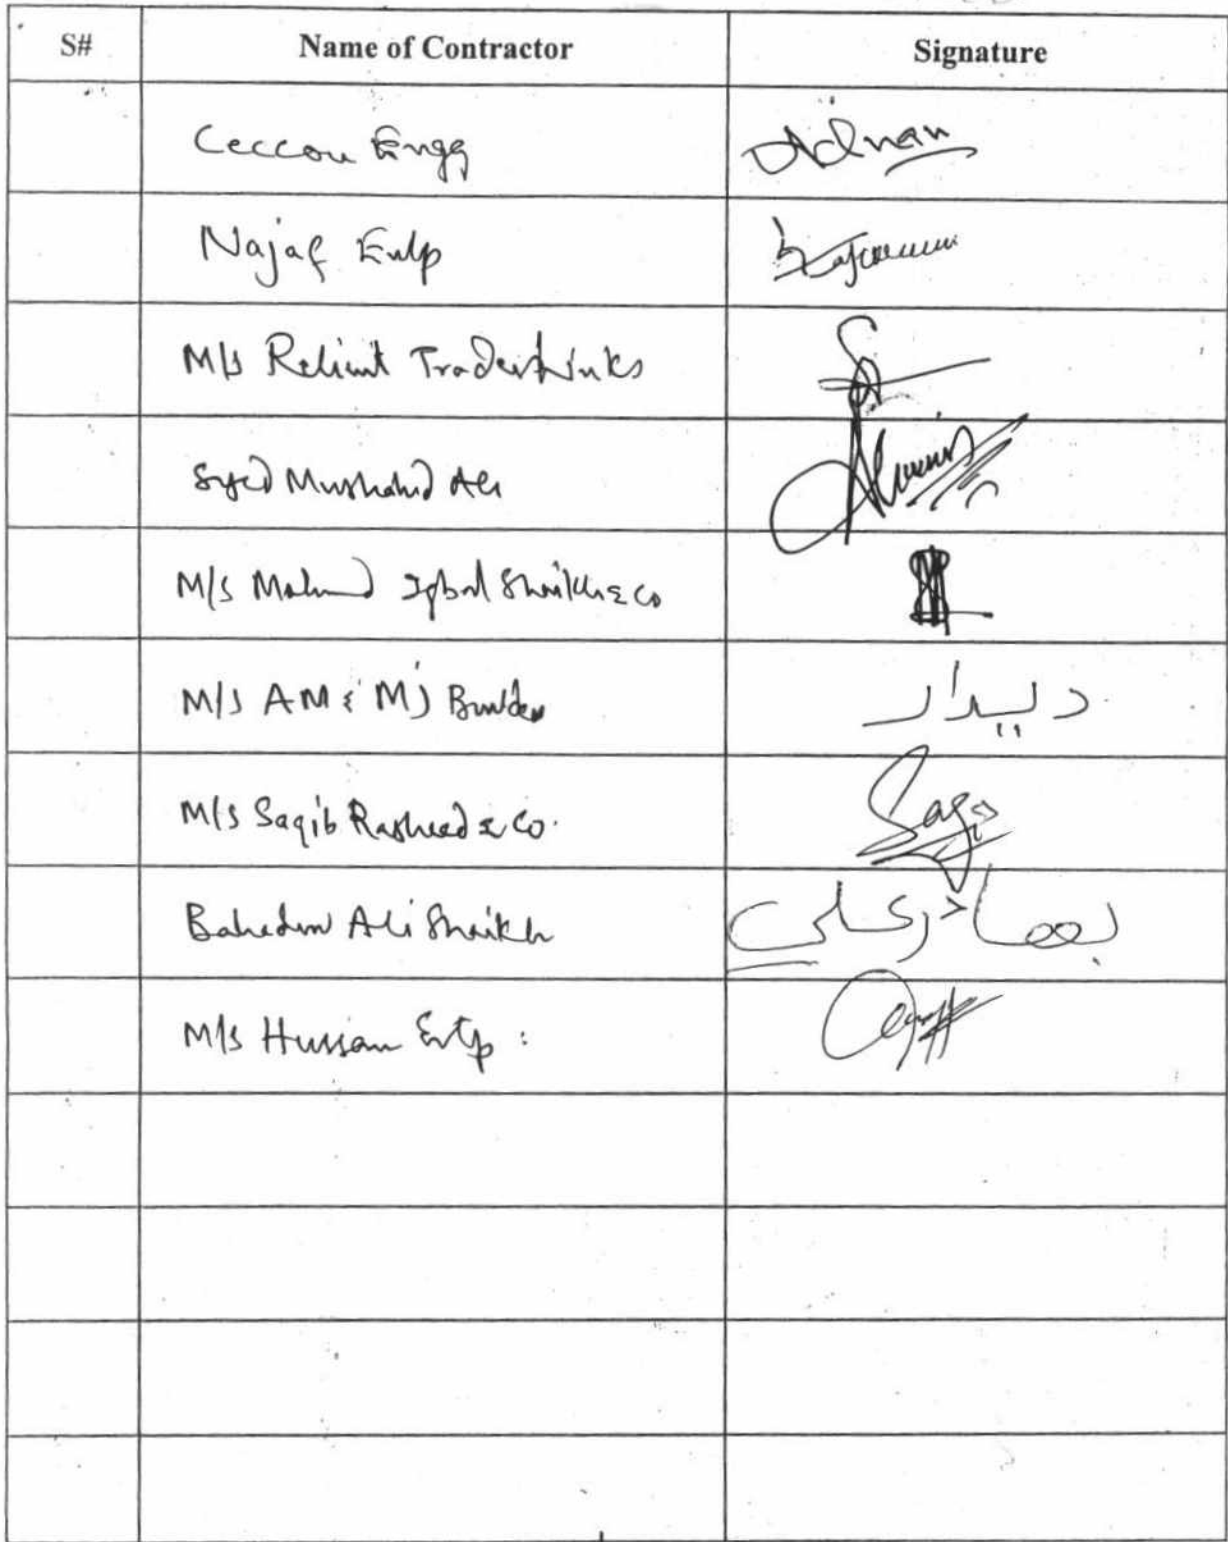 S# Name of Contractor Signature
Ceccon Engg Adnan
Najaf Entp
M/s Reliant Traders Links
Syed Mushahid Ali
M/s Iqbal Shaikh & Co
M/s AM & MJ Builder ديدار
M/s Saqib Rasheed & Co. Saqib
Bahadur Ali Shaikh بهادر علي
M/s Hussain Entp :